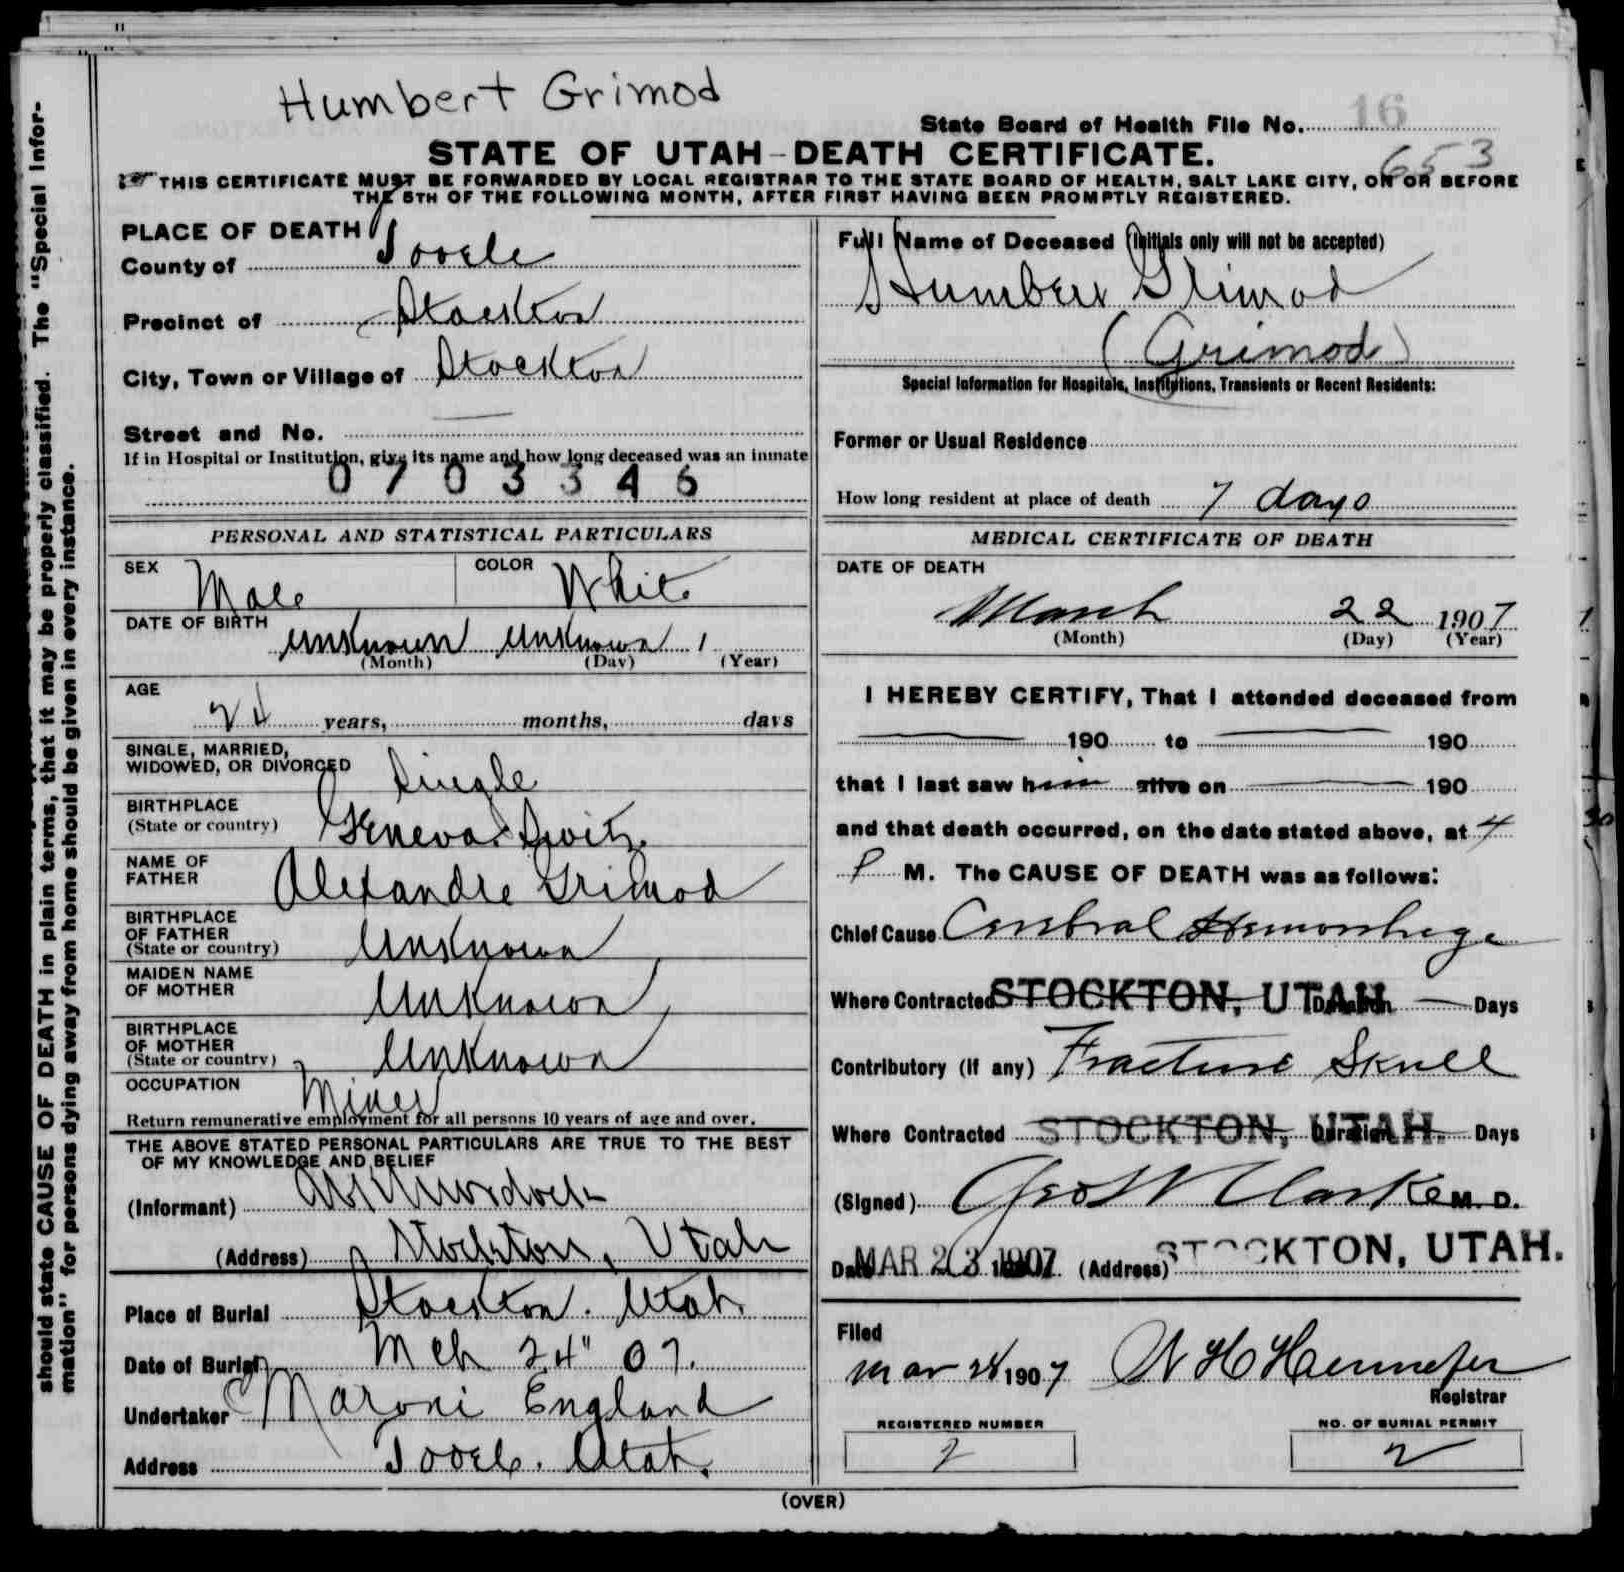 Humbert Grimod
State Board of Health File No. 16
653
STATE OF UTAH-DEATH CERTIFICATE.
THIS CERTIFICATE MUST BE FORWARDED BY LOCAL REGISTRAR TO THE STATE BOARD OF HEALTH, SALT LAKE CITY, ON OR BEFORE
THE 5TH OF THE FOLLOWING MONTH, AFTER FIRST HAVING BEEN PROMPTLY REGISTERED.
should state CAUSE OF DEATH in plain terms, that it may be properly classified. The "Special Infor-
mation" for persons dying away from home should be given in every instance.
PLACE OF DEATH
County of Tooele
Precinct of Stockton
City, Town or Village of Stockton
Street and No.
If in Hospital or Institution, give its name and how long deceased was an inmate
0703346
PERSONAL AND STATISTICAL PARTICULARS
SEX Male COLOR White
DATE OF BIRTH
unknown unknown 1
(Month) (Day) (Year)
AGE
24 years, months, days
SINGLE, MARRIED,
WIDOWED, OR DIVORCED Single
BIRTHPLACE
(State or country) Geneva. Switz.
NAME OF
FATHER Alexandre Grimod
BIRTHPLACE
OF FATHER
(State or country) Unknown
MAIDEN NAME
OF MOTHER Unknown
BIRTHPLACE
OF MOTHER
(State or country) Unknown
OCCUPATION Miner
Return remunerative employment for all persons 10 years of age and over.
THE ABOVE STATED PERSONAL PARTICULARS ARE TRUE TO THE BEST
OF MY KNOWLEDGE AND BELIEF
(Informant) Murdock
(Address) Stockton, Utah
Place of Burial Stockton. Utah.
Date of Burial Mch 24" 07.
Undertaker Maroni England
Address Tooele. Utah.
Full Name of Deceased (Initials only will not be accepted)
Humbert Grimod
(Grimod)
Special Information for Hospitals, Institutions, Transients or Recent Residents:
Former or Usual Residence
How long resident at place of death 7 days
MEDICAL CERTIFICATE OF DEATH
DATE OF DEATH
March 22 1907
(Month) (Day) (Year)
I HEREBY CERTIFY, That I attended deceased from
190 to 190
that I last saw him alive on 190
and that death occurred, on the date stated above, at 4
P M. The CAUSE OF DEATH was as follows:
Chief Cause Cerebral Hemorrhage
Where Contracted STOCKTON, UTAH Duration Days
Contributory (If any) Fracture Skull
Where Contracted STOCKTON, UTAH. Duration Days
(Signed) Geo W Clarke M. D.
Date MAR 23 1907 (Address) STOCKTON, UTAH.
Filed
Mar 24 1907 Registrar
REGISTERED NUMBER NO. OF BURIAL PERMIT
2 2
(OVER)